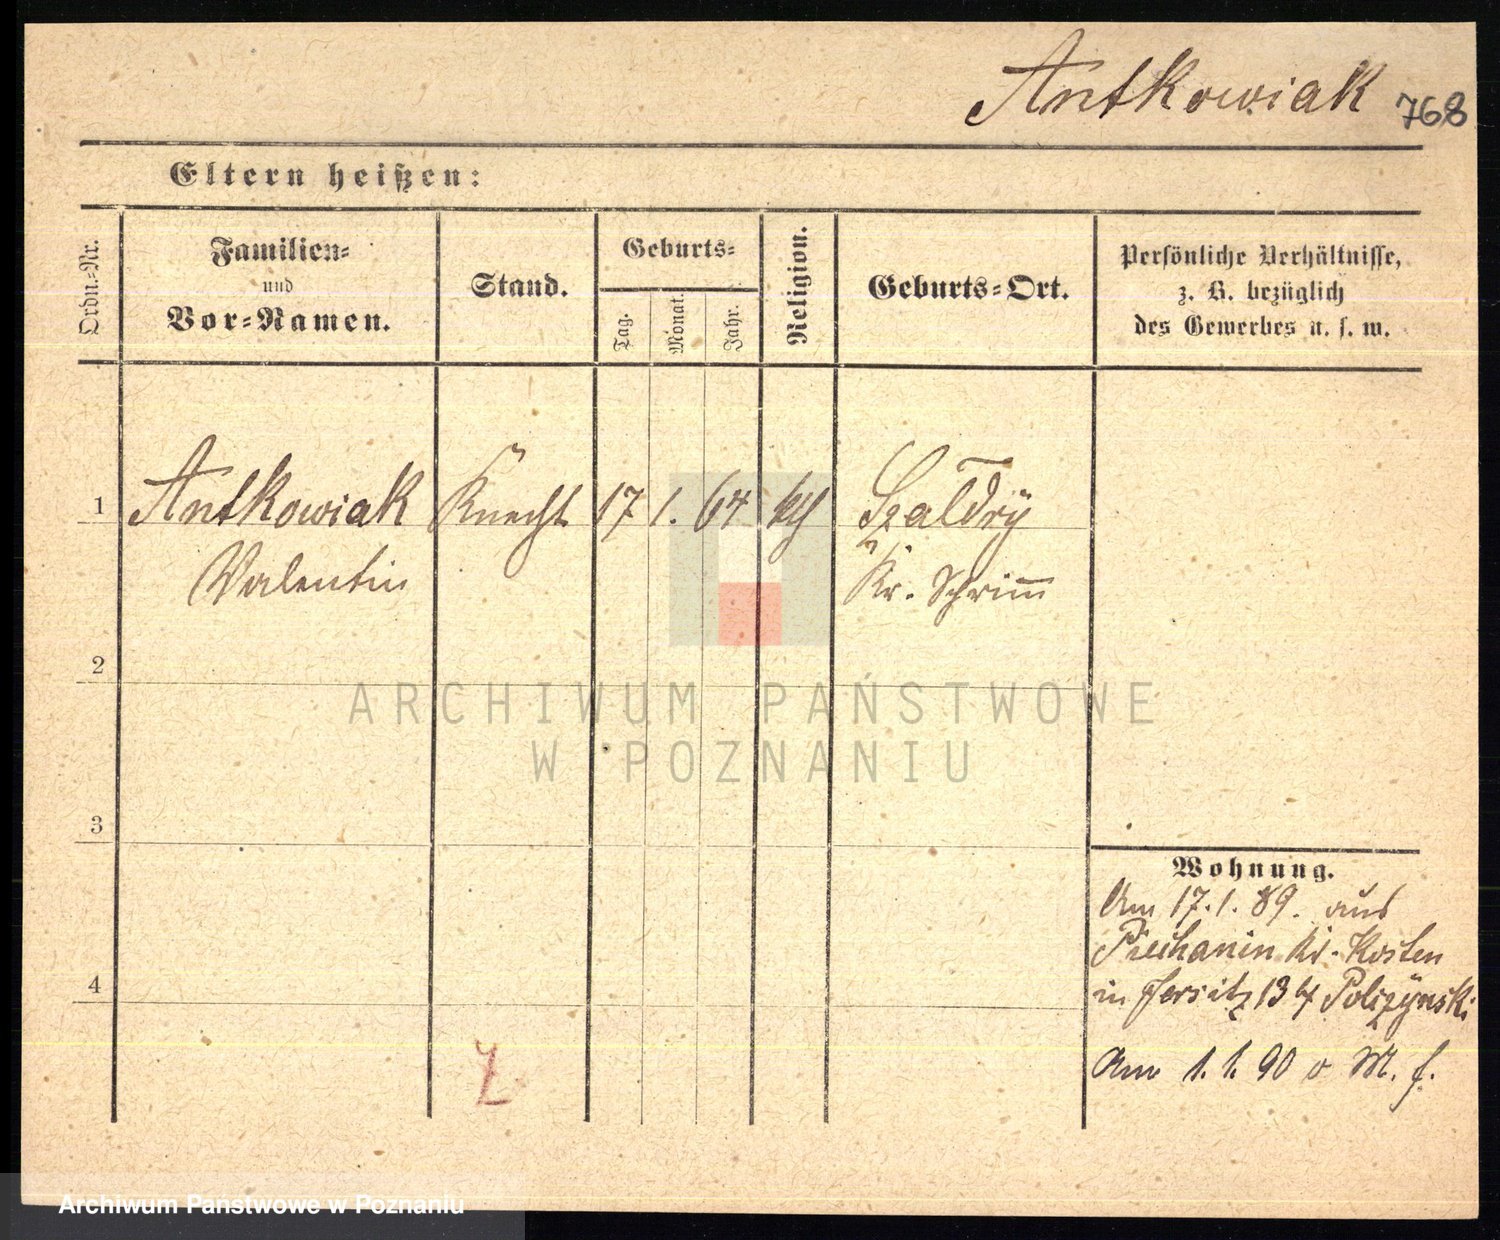 Antkowiak 768
Eltern heißen:
Ordn.-Nr.
Familien-
und
Vor-Namen.
Stand.
Geburts-
Tag.
Monat.
Jahr.
Religion.
Geburts-Ort.
Persönliche Verhältnisse,
z. B. bezüglich
des Gewerbes u. s. w.
1 Antkowiak Knecht 17 1. 64 kth Szołdry
Valentin Kr. Schrim̄
2
ARCHIWUM PAŃSTWOWE
W POZNANIU
3
Wohnung.
Am 17.1.89. aus
Piechanin Kr. Kosten
4
in Jersitz 134 Polszynski
Am 1.1.90 o M. f.
Z
Archiwum Państwowe w Poznaniu